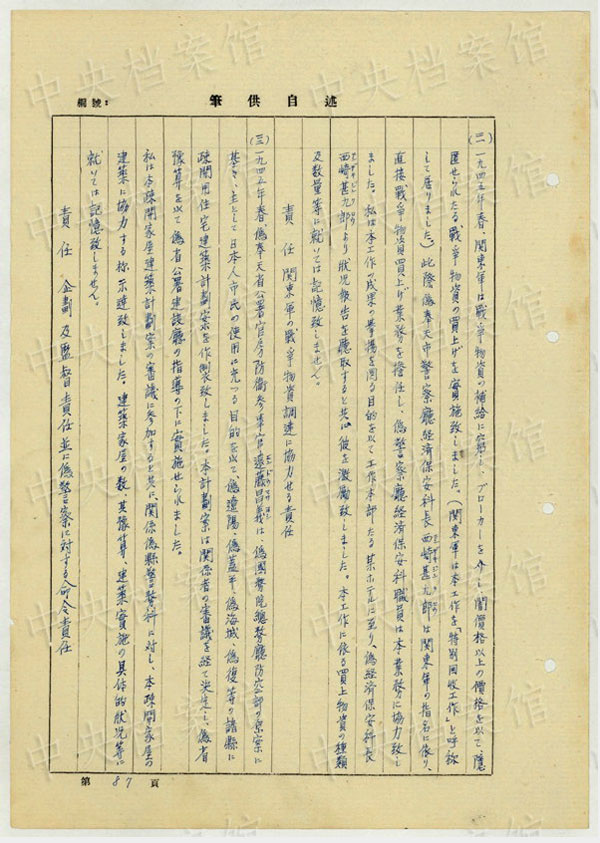 述自供筆
欄號:
(二)一九四五年春、関東軍は戰爭物資の補給に窮し、ブローカーを介し闇價格以上の價格を以て隱
匿せられたる「戰爭物資の買上げを實施致しました。(関東軍は本工作を「特別回收工作」と呼称
して居りました。)此際偽奉天市警察廳経済保安科長西崎甚九郎は関東軍の指名に依り、
直接戰爭物資買上げ業務を擔任し、偽警察廳経済保安科職員は本業務に協力致し
ました。私は本工作の成果の挙揚を図る目的を以て工作本部たる某ホテルに至り、偽経済保安科長
西崎甚九郎より狀況報告を聽取すると共に彼を激勵致しました。本工作に依る買上物資の種類
及数量等に就いては記憶致しません。
責任 関東軍の戰爭物資調達に協力せる責任
(三)一九四五年春、偽奉天省公署官房防衛参事官遠藤昌義は、偽國務院總務廳防空部の原案に
基き、主として日本人市民の使用に充つる目的を以て、偽遼陽、偽蓋平、偽海城、偽復等の諸縣に
疎開用住宅建築計劃案を作製致しました。本計劃案は関係者の審議を経て決定し、偽省
豫算を以て偽省公署建設廳の指導の下に實施せられました。
私は本疎開家屋建築計劃案の審議に参加すると共に、関係偽縣警務科に対し、本疎開家屋の
建築に協力する様示達致しました。建築家屋の数、其豫算、建築實施の具体的狀況等に
就いては記憶致しません。
責任 企劃及監督責任並に偽警察に対する命令責任
第 87 頁
中央档案馆